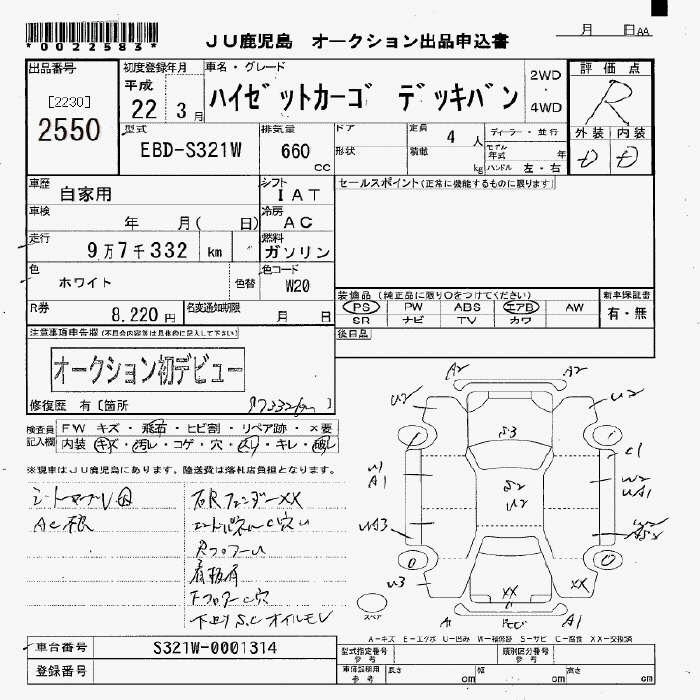 *0022583*
JU鹿児島 オークション出品申込書
月 日AA
出品番号
[2230]
2550
初度登録年月
平成
22 3月
車名・グレード
ハイゼットカーゴ デッキバン
2WD
・
4WD
評価点
R
外装 内装
D D
型式
EBD-S321W
排気量
660
cc
ドア
形状
定員 4 人
積載 kg
ディーラー・並行
モデル年式 年
ハンドル 左・右
車歴
自家用
シフト
IAT
セールスポイント(正常に機能するものに限ります)
車検
年 月( 日)
冷房
AC
走行
9万7千332 km
燃料
ガソリン
色
ホワイト
色替
色コード
W20
装備品(純正品に限り○をつけてください)
新車保証書
PS PW ABS エアB AW
有・無
SR ナビ TV カワ
R券
8,220円
名変通知期限
月 日
後日品
注意事項申告欄(不具合内容等は具体的に記入して下さい)
オークション初デビュー
修復歴 有[箇所 ]
検査員記入欄
FW キズ・飛石・ヒビ割・リペア跡・×要
内装 キズ・汚レ・コゲ・穴・スリ・キレ・破レ
※現車はJU鹿児島にあります、陸送費は落札店負担となります。
AC
右Rフェンダー XX
Rフロアー U
A2 A2
U2 U2
S3
C1
A1
S2
U2
W2
UA1
UA3
W2
U3
XX XX
A1
スペア
A-キズ E-エクボ U-凹み W-補修跡 S-サビ C-腐食 XX-交換済
車台番号
S321W-0001314
型式指定番号
参考
類別区分番号
参考
登録番号
車庫証明用
参考
長さ cm
幅 cm
高さ cm